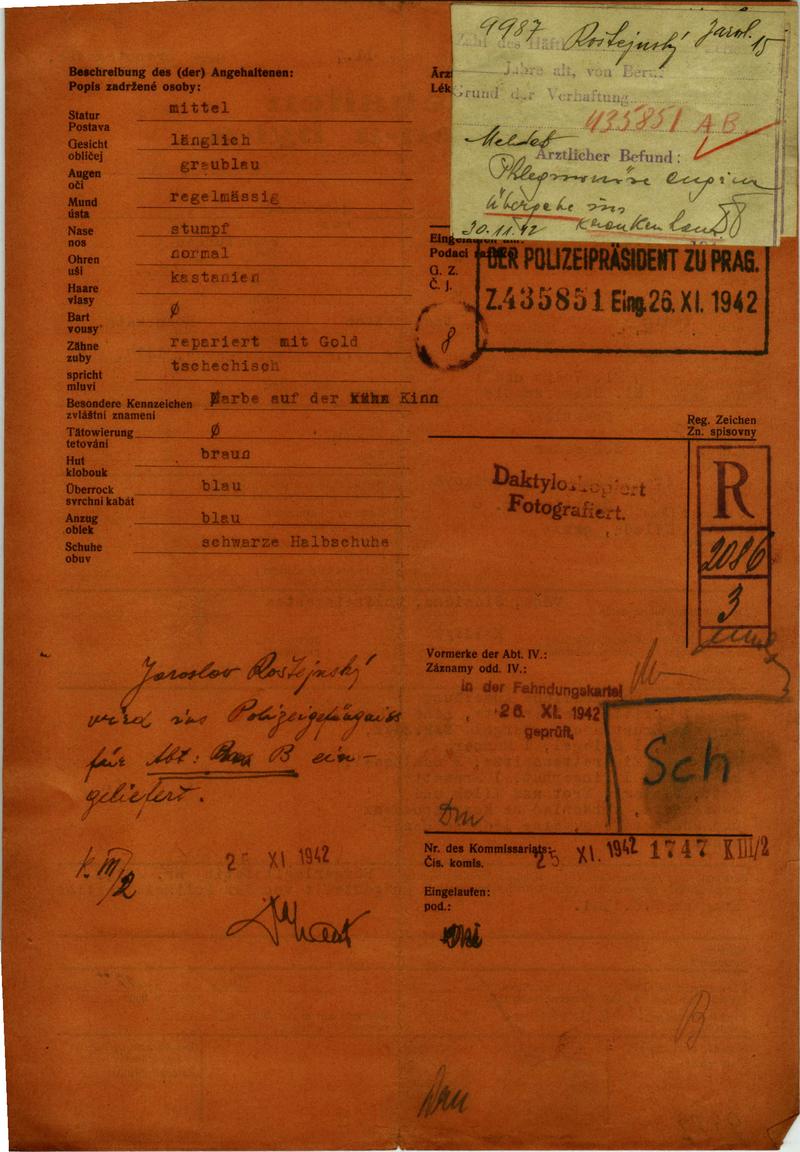 9987 Rostejnský Jarosl. 15
Zahl des Häftl
Jahre alt, von Beruf
Grund der Verhaftung
435851 A B
Meldet
Ärztlicher Befund:
Phlegmonöse angina
Übergabe ins
Krankenhaus
30.11.42
Beschreibung des (der) Angehaltenen:
Popis zadržené osoby:
Statur mittel
Postava
Gesicht länglich
obličej
Augen graublau
oči
Mund regelmässig
ústa
Nase stumpf
nos
Ohren normal
uši
Haare kastanien
vlasy
Bart Ø
vousy
Zähne repariert mit Gold
zuby
spricht tschechisch
mluví
Besondere Kennzeichen Narbe auf der Kinn
zvláštní znamení
Tätowierung Ø
tetování
Hut braun
klobouk
Überrock blau
svrchní kabát
Anzug blau
oblek
Schuhe schwarze Halbschuhe
obuv
Ärz
Lék
Eingelaufen am:
Podací
G. Z.
Č. j.
DER POLIZEIPRÄSIDENT ZU PRAG.
Z. 435851 Eing. 26. XI. 1942
8
Reg. Zeichen
Zn. spisovny
R
2086
3
Daktyloskopiert
Fotografiert.
Jaroslav Rostejnský
wird ins Polizeigefängniss
für Abt: B ein-
geliefert.
K. III/2
25 XI. 1942
Vormerke der Abt. IV.:
Záznamy odd. IV.:
in der Fahndungskartei
26. XI. 1942
geprüft.
Sch
Nr. des Kommissariats: 25 XI. 1942 1747 K III/2
Čís. komis.
Eingelaufen:
pod.:
B